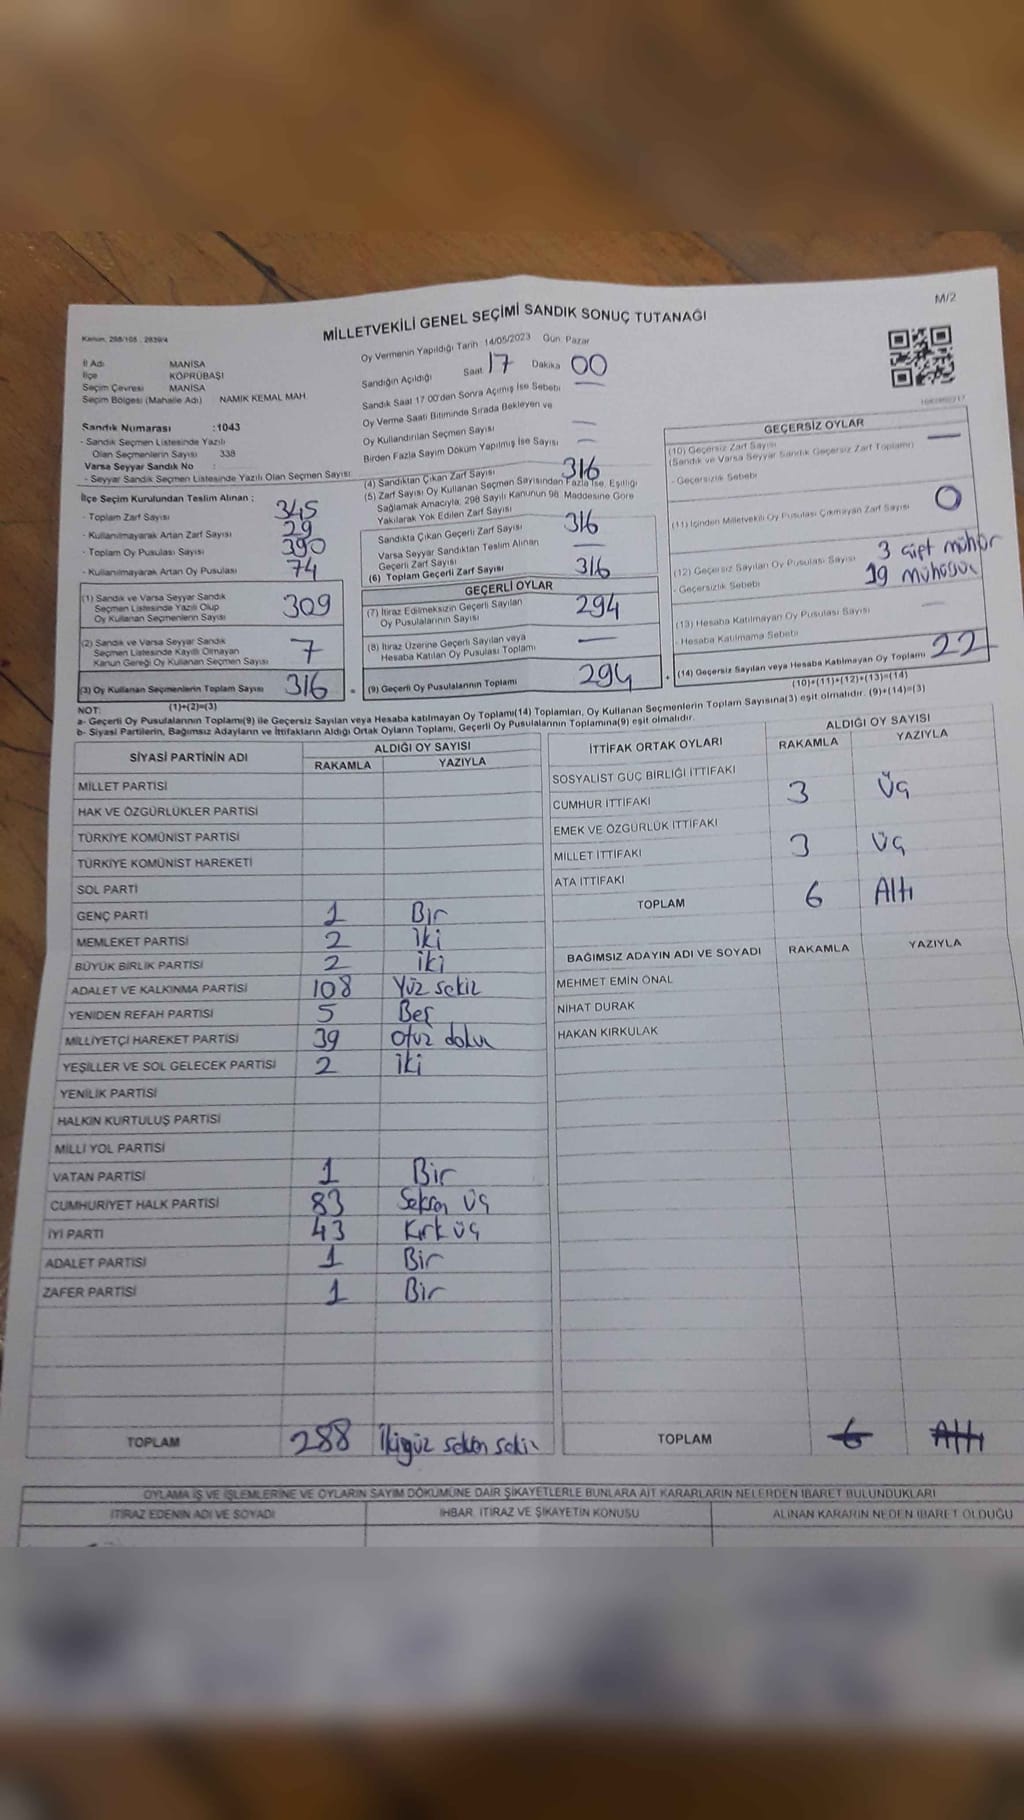 M/2
MİLLETVEKİLİ GENEL SEÇİMİ SANDIK SONUÇ TUTANAĞI
İl Adı MANİSA
İlçe KÖPRÜBAŞI
Seçim Çevresi MANİSA
Seçim Bölgesi (Mahalle Adı) NAMIK KEMAL MAH.
Sandık Numarası :1043
- Sandık Seçmen Listesinde Yazılı
Olan Seçmenlerin Sayısı 338
Varsa Seyyar Sandık No :
- Seyyar Sandık Seçmen Listesinde Yazılı Olan Seçmen Sayısı:
İlçe Seçim Kurulundan Teslim Alınan :
- Toplam Zarf Sayısı 345
- Kullanılmayarak Artan Zarf Sayısı 29
- Toplam Oy Pusulası Sayısı 390
- Kullanılmayarak Artan Oy Pusulası 74
(1) Sandık ve Varsa Seyyar Sandık
Seçmen Listesinde Yazılı Olup
Oy Kullanan Seçmenlerin Sayısı 309
(2) Sandık ve Varsa Seyyar Sandık
Seçmen Listesinde Kayıtlı Olmayan
Kanun Gereği Oy Kullanan Seçmen Sayısı 7
(3) Oy Kullanan Seçmenlerin Toplam Sayısı 316
(1)+(2)=(3)
Oy Vermenin Yapıldığı Tarih 14/05/2023 Gün Pazar
Sandığın Açıldığı Saat 17 Dakika 00
Sandık Saat 17:00'den Sonra Açılmış İse Sebebi —
Oy Verme Saati Bitiminde Sırada Bekleyen ve
Oy Kullandırılan Seçmen Sayısı —
Birden Fazla Sayım Döküm Yapılmış İse Sayısı —
(4) Sandıktan Çıkan Zarf Sayısı 316
(5) Zarf Sayısı Oy Kullanan Seçmen Sayısından Fazla İse, Eşitliği
Sağlamak Amacıyla, 298 Sayılı Kanunun 98. Maddesine Göre
Yakılarak Yok Edilen Zarf Sayısı
Sandıkta Çıkan Geçerli Zarf Sayısı 316
Varsa Seyyar Sandıktan Teslim Alınan
Geçerli Zarf Sayısı —
(6) Toplam Geçerli Zarf Sayısı 316
GEÇERLİ OYLAR
(7) İtiraz Edilmeksizin Geçerli Sayılan
Oy Pusulalarının Sayısı 294
(8) İtiraz Üzerine Geçerli Sayılan veya
Hesaba Katılan Oy Pusulası Toplamı —
= (9) Geçerli Oy Pusulalarının Toplamı 294
GEÇERSİZ OYLAR
(10) Geçersiz Zarf Sayısı —
(Sandık ve Varsa Seyyar Sandık Geçersiz Zarf Toplamı)
- Geçersizlik Sebebi
(11) İçinden Milletvekili Oy Pusulası Çıkmayan Zarf Sayısı 0
(12) Geçersiz Sayılan Oy Pusulası Sayısı 3 çift mühür
- Geçersizlik Sebebi 19 mühürsüz
(13) Hesaba Katılmayan Oy Pusulası Sayısı —
- Hesaba Katılmama Sebebi
+ (14) Geçersiz Sayılan veya Hesaba Katılmayan Oy Toplamı 22
(10)+(11)+(12)+(13)=(14)
NOT:
a- Geçerli Oy Pusulalarının Toplamı(9) ile Geçersiz Sayılan veya Hesaba katılmayan Oy Toplamı(14) Toplamları, Oy Kullanan Seçmenlerin Toplam Sayısına(3) eşit olmalıdır. (9)+(14)=(3)
b- Siyasi Partilerin, Bağımsız Adayların ve İttifakların Aldığı Ortak Oyların Toplamı, Geçerli Oy Pusulalarının Toplamına(9) eşit olmalıdır.
SİYASİ PARTİNİN ADI ALDIĞI OY SAYISI
RAKAMLA YAZIYLA
MİLLET PARTİSİ
HAK VE ÖZGÜRLÜKLER PARTİSİ
TÜRKİYE KOMÜNİST PARTİSİ
TÜRKİYE KOMÜNİST HAREKETİ
SOL PARTİ
GENÇ PARTİ 1 Bir
MEMLEKET PARTİSİ 2 iki
BÜYÜK BİRLİK PARTİSİ 2 iki
ADALET VE KALKINMA PARTİSİ 108 Yüz sekiz
YENİDEN REFAH PARTİSİ 5 Beş
MİLLİYETÇİ HAREKET PARTİSİ 39 otuz dokuz
YEŞİLLER VE SOL GELECEK PARTİSİ 2 iki
YENİLİK PARTİSİ
HALKIN KURTULUŞ PARTİSİ
MİLLİ YOL PARTİSİ
VATAN PARTİSİ 1 Bir
CUMHURİYET HALK PARTİSİ 83 Seksen üç
İYİ PARTİ 43 Kırk üç
ADALET PARTİSİ 1 Bir
ZAFER PARTİSİ 1 Bir
TOPLAM 288 İkiyüz seksen sekiz
İTTİFAK ORTAK OYLARI ALDIĞI OY SAYISI
RAKAMLA YAZIYLA
SOSYALİST GÜÇ BİRLİĞİ İTTİFAKI
CUMHUR İTTİFAKI 3 Üç
EMEK VE ÖZGÜRLÜK İTTİFAKI
MİLLET İTTİFAKI 3 Üç
ATA İTTİFAKI
TOPLAM 6 Altı
BAĞIMSIZ ADAYIN ADI VE SOYADI RAKAMLA YAZIYLA
MEHMET EMİN ÖNAL
NİHAT DURAK
HAKAN KIRKULAK
TOPLAM 6 Altı
OYLAMA İŞ VE İŞLEMLERİNE VE OYLARIN SAYIM DÖKÜMÜNE DAİR ŞİKAYETLERLE BUNLARA AİT KARARLARIN NELERDEN İBARET BULUNDUKLARI
İTİRAZ EDENİN ADI VE SOYADI İHBAR, İTİRAZ VE ŞİKAYETİN KONUSU ALINAN KARARIN NEDEN İBARET OLDUĞU